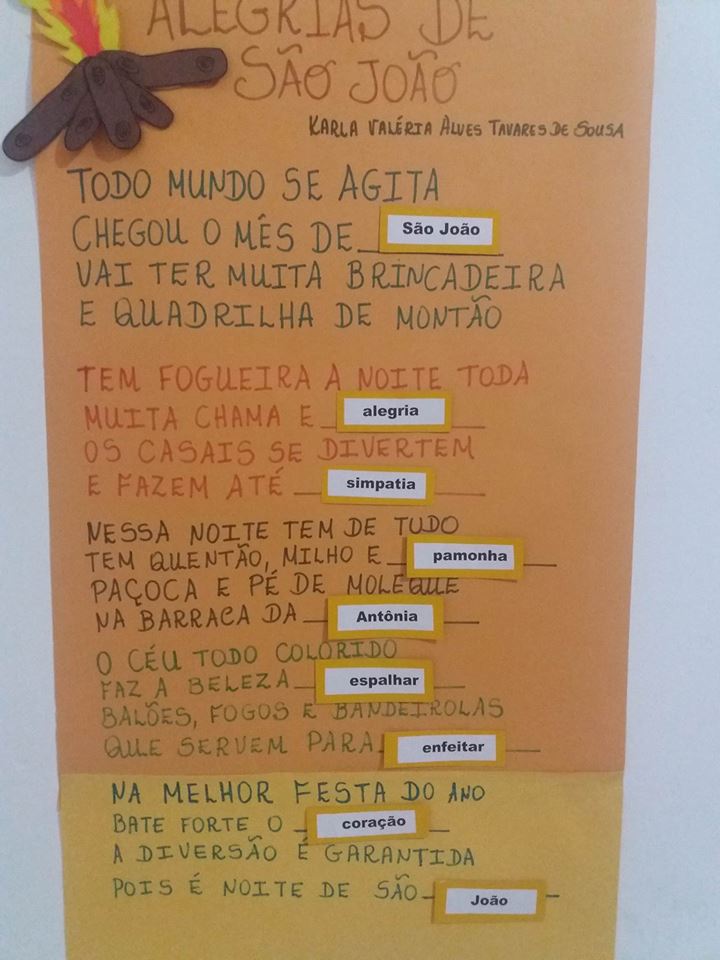 ALEGRIAS DE
SÃO JOÃO
KARLA VALÉRIA ALVES TAVARES DE SOUSA
TODO MUNDO SE AGITA
CHEGOU O MÊS DE São João
VAI TER MUITA BRINCADEIRA
E QUADRILHA DE MONTÃO
TEM FOGUEIRA A NOITE TODA
MUITA CHAMA E alegria
OS CASAIS SE DIVERTEM
E FAZEM ATÉ simpatia
NESSA NOITE TEM DE TUDO
TEM QUENTÃO, MILHO E pamonha
PAÇOCA E PÉ DE MOLEQUE
NA BARRACA DA Antônia
O CÉU TODO COLORIDO
FAZ A BELEZA espalhar
BALÕES, FOGOS E BANDEIROLAS
QUE SERVEM PARA enfeitar
NA MELHOR FESTA DO ANO
BATE FORTE O coração
A DIVERSÃO É GARANTIDA
POIS É NOITE DE SÃO João